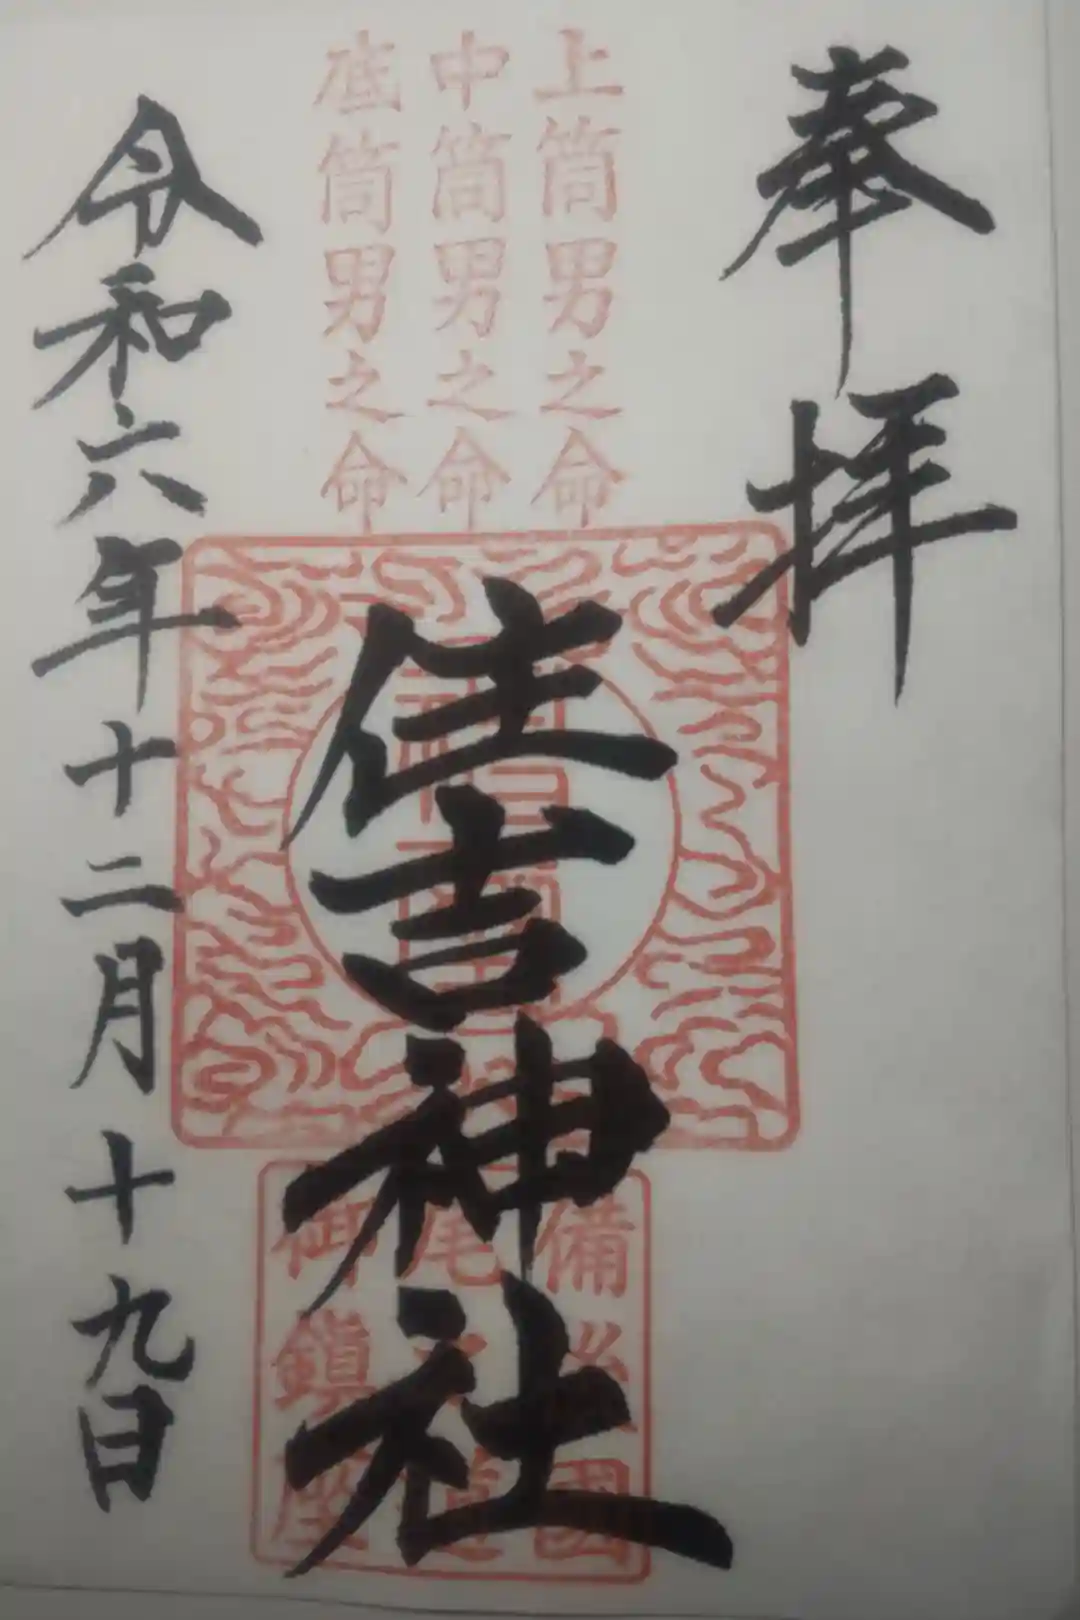 奉拝
上筒男之命
中筒男之命
底筒男之命
住吉神社
備後國
尾之道
御鎮座
令和六年十二月十九日